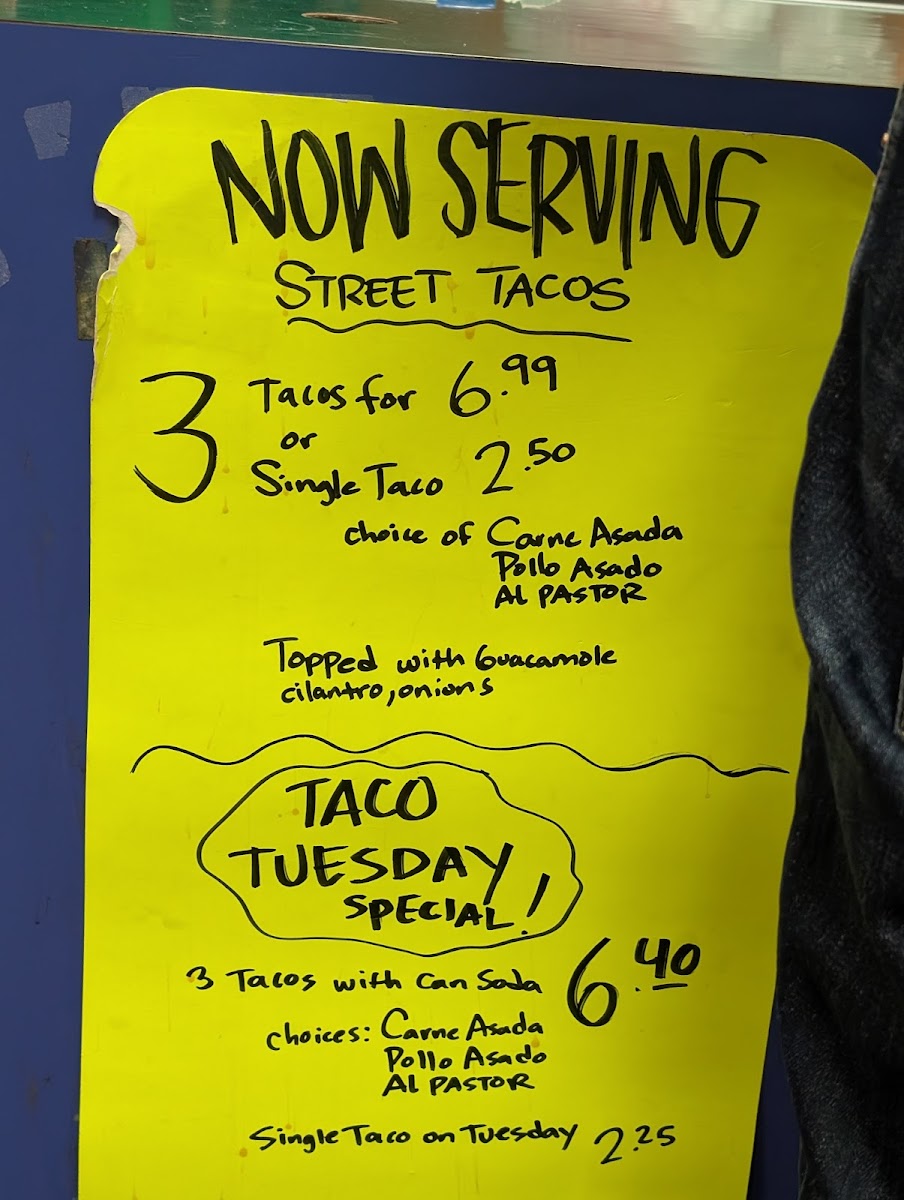 NOW SERVING
STREET TACOS
3 Tacos for 6.99
or
Single Taco 2.50
choice of Carne Asada
Pollo Asado
Al PASTOR
Topped with Guacamole
cilantro, onions
TACO
TUESDAY
SPECIAL!
3 Tacos with Can Soda 6.40
choices: Carne Asada
Pollo Asado
Al PASTOR
Single Taco on Tuesday 2.25